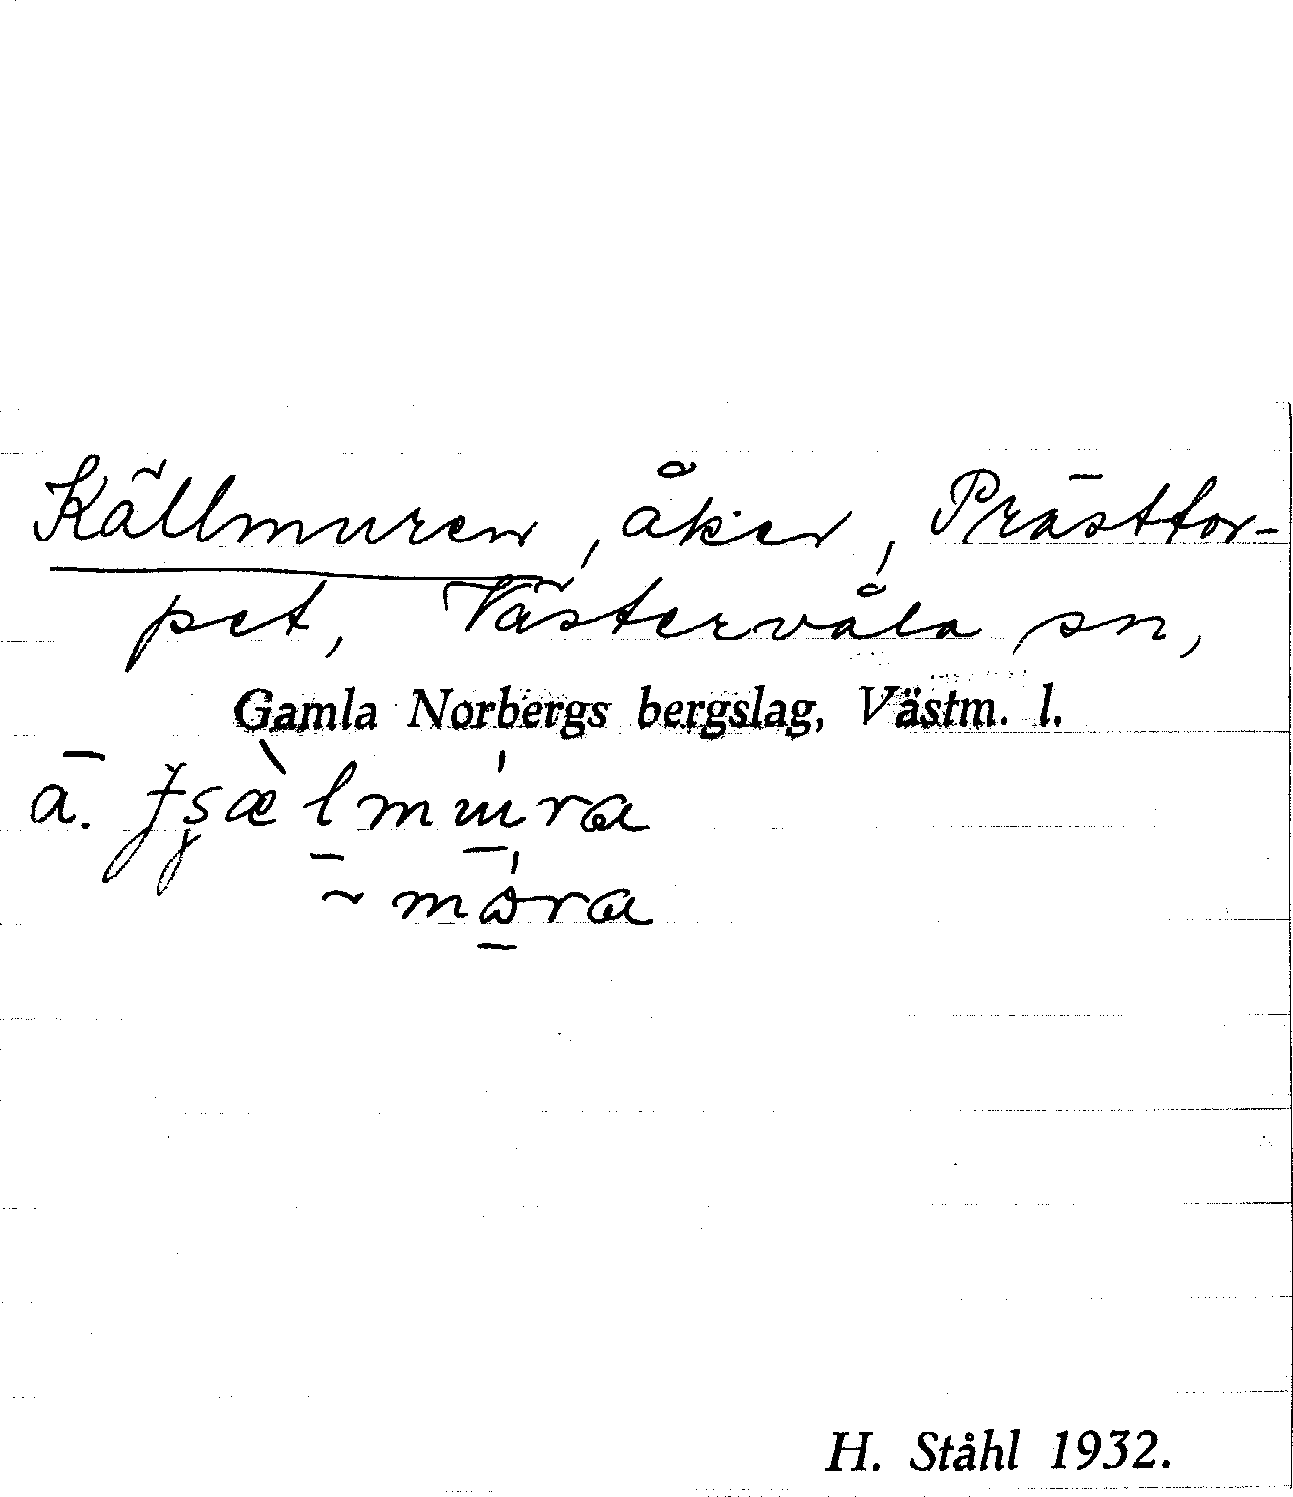 Källmuren, åker, Prästtor-
pet, Västervåla sn,
Gamla Norbergs bergslag, Västm. l.
ä.
H. Ståhl 1932.